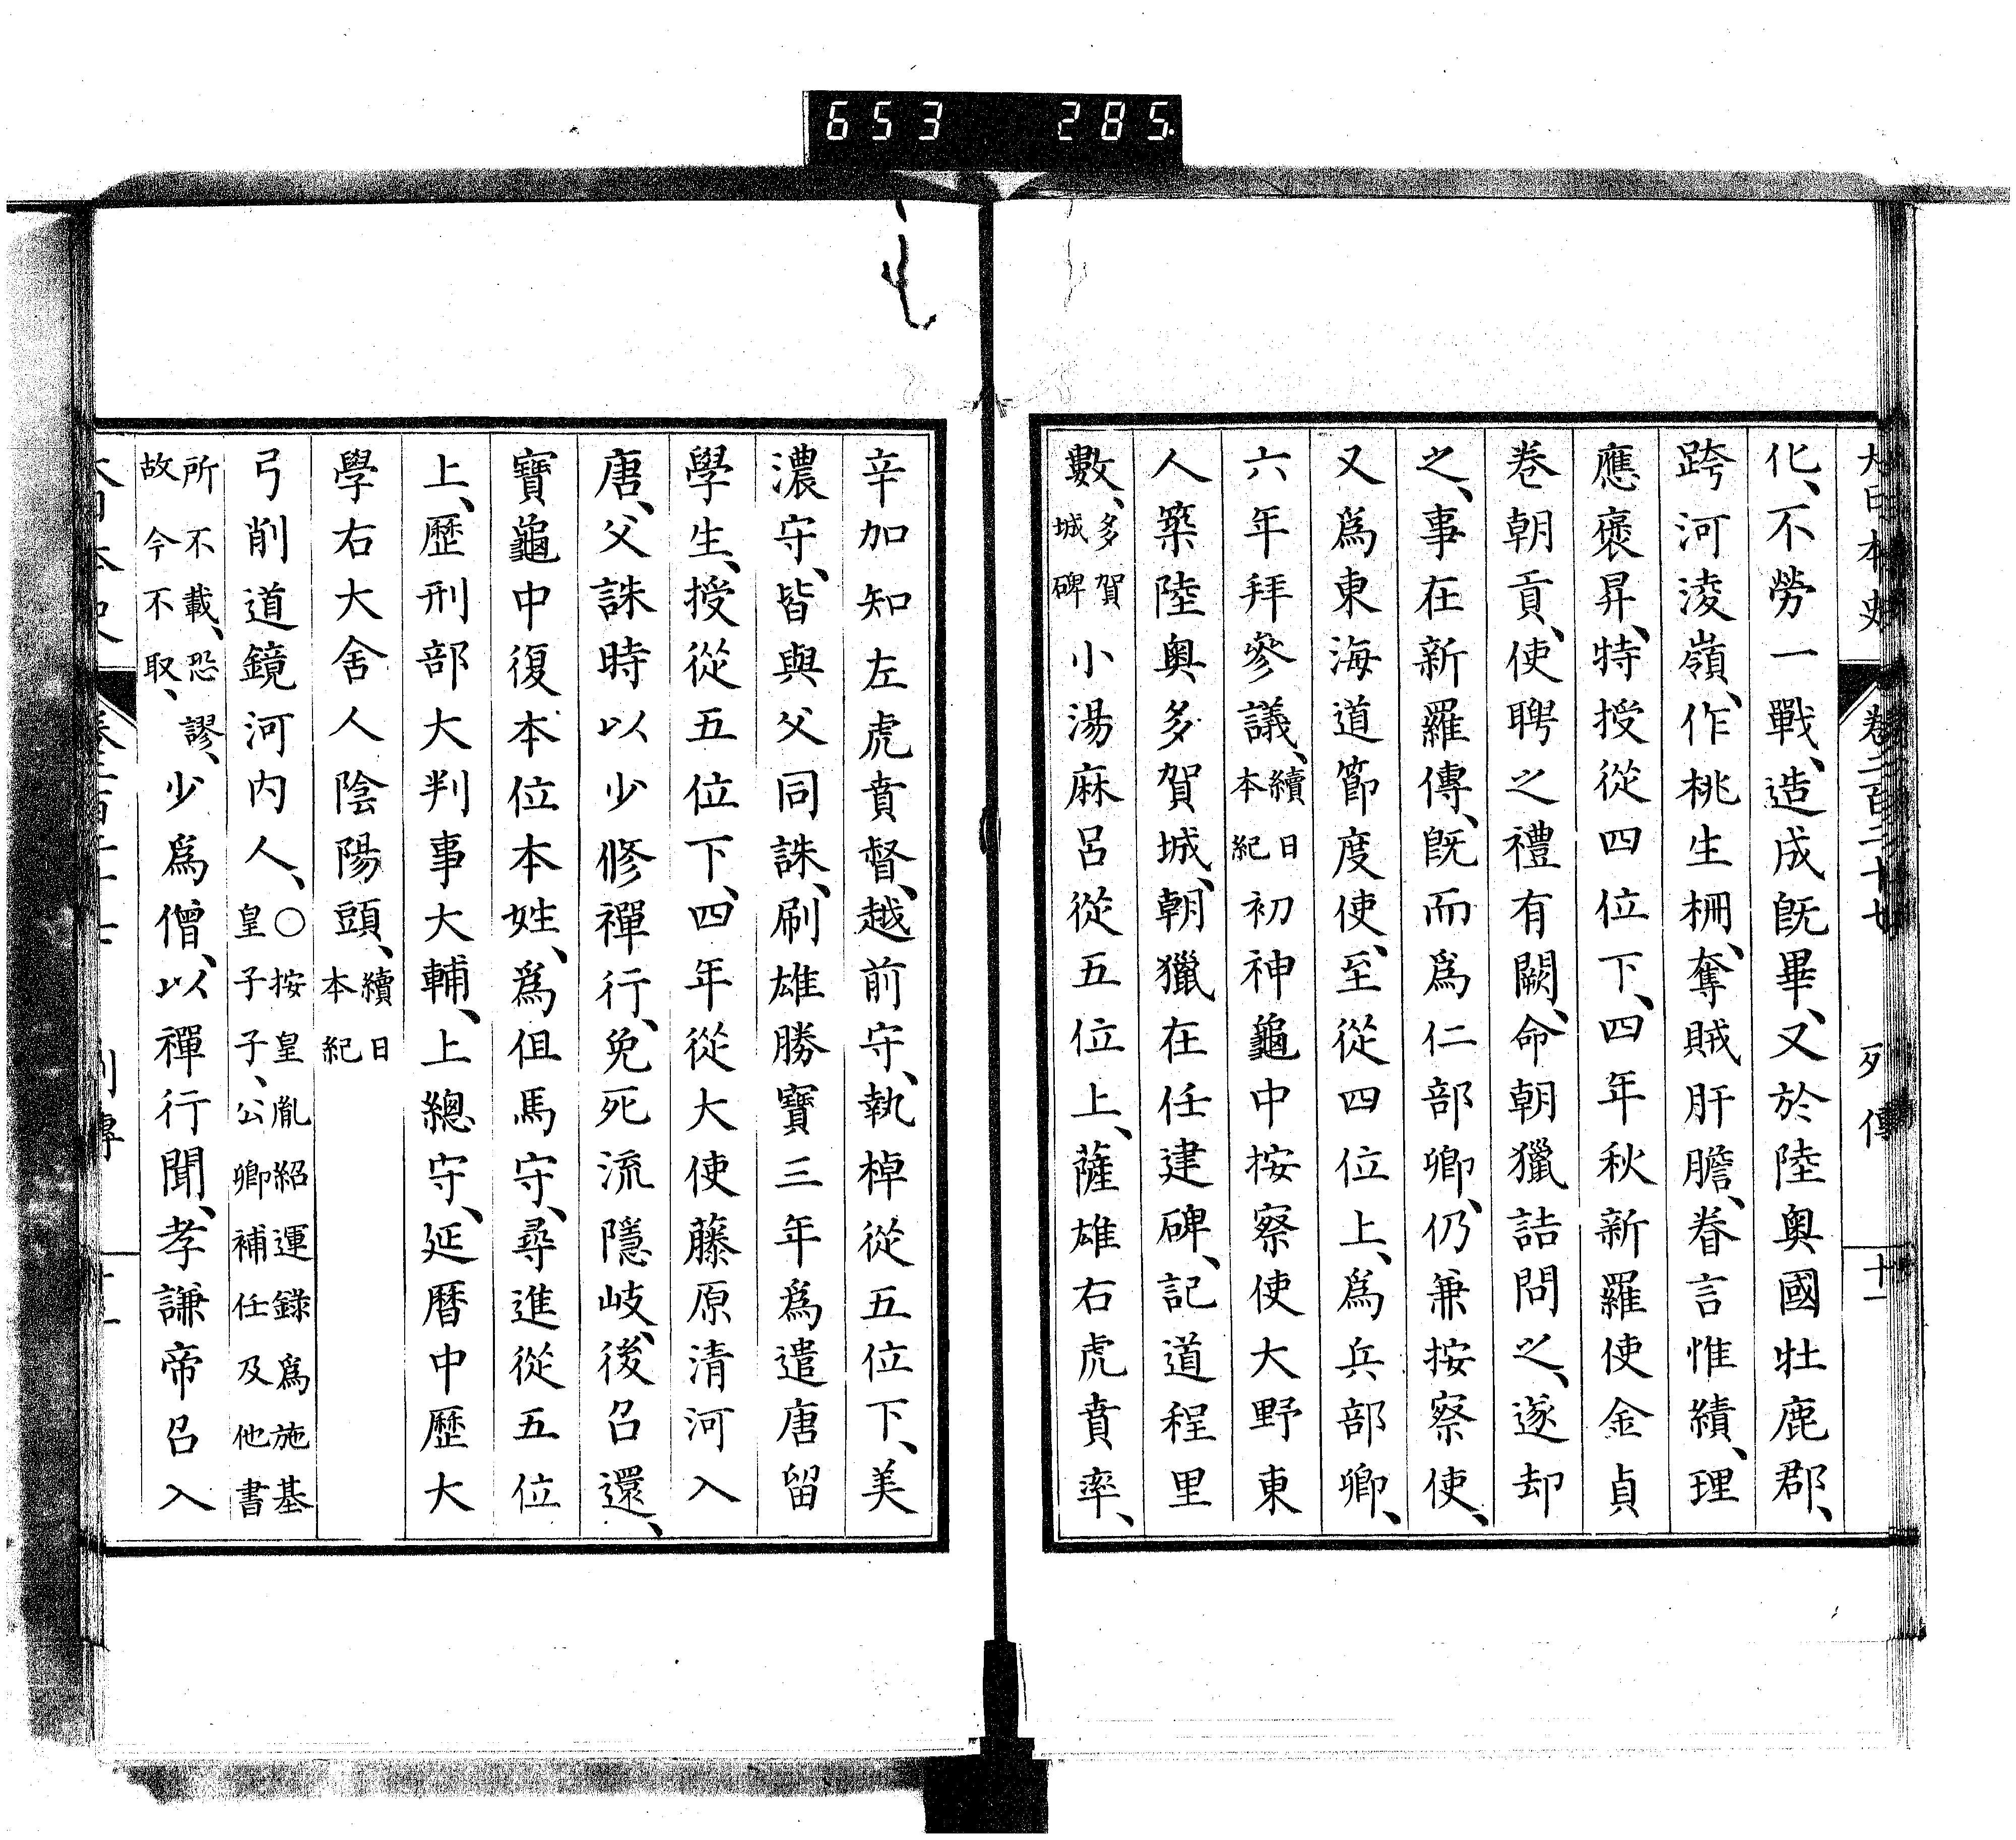 653 285
大日本史 卷二百二十七 列傳 十一
化、不勞一戰、造成旣畢、又於陸奥國牡鹿郡、
跨河淩嶺、作桃生柵、奪賊肝膽、眷言惟績、理
應褒昇、特授從四位下、四年秋新羅使金貞
卷朝貢、使聘之禮有闕、命朝獵詰問之、遂却
之、事在新羅傳、旣而爲仁部卿、仍兼按察使、
又爲東海道節度使、至從四位上、爲兵部卿、
六年拜參議、續日本紀初神龜中按察使大野東
人築陸奥多賀城、朝獵在任建碑、記道程里
數、多賀城碑小湯麻呂從五位上、薩雄右虎賁率、
辛加知左虎賁督、越前守、執棹從五位下、美
濃守、皆與父同誅、刷雄勝寶三年爲遣唐留
學生、授從五位下、四年從大使藤原清河入
唐、父誅時以少修禪行、免死流隱岐、後召還、
寶龜中復本位本姓、爲但馬守、尋進從五位
上、歷刑部大判事大輔、上總守、延曆中歷大
學右大舍人陰陽頭、續日本紀
弓削道鏡河内人、○按皇胤紹運錄爲施基皇子子、公卿補任及他書
所不載、恐謬、故今不取、少爲僧、以禪行聞、孝謙帝召入